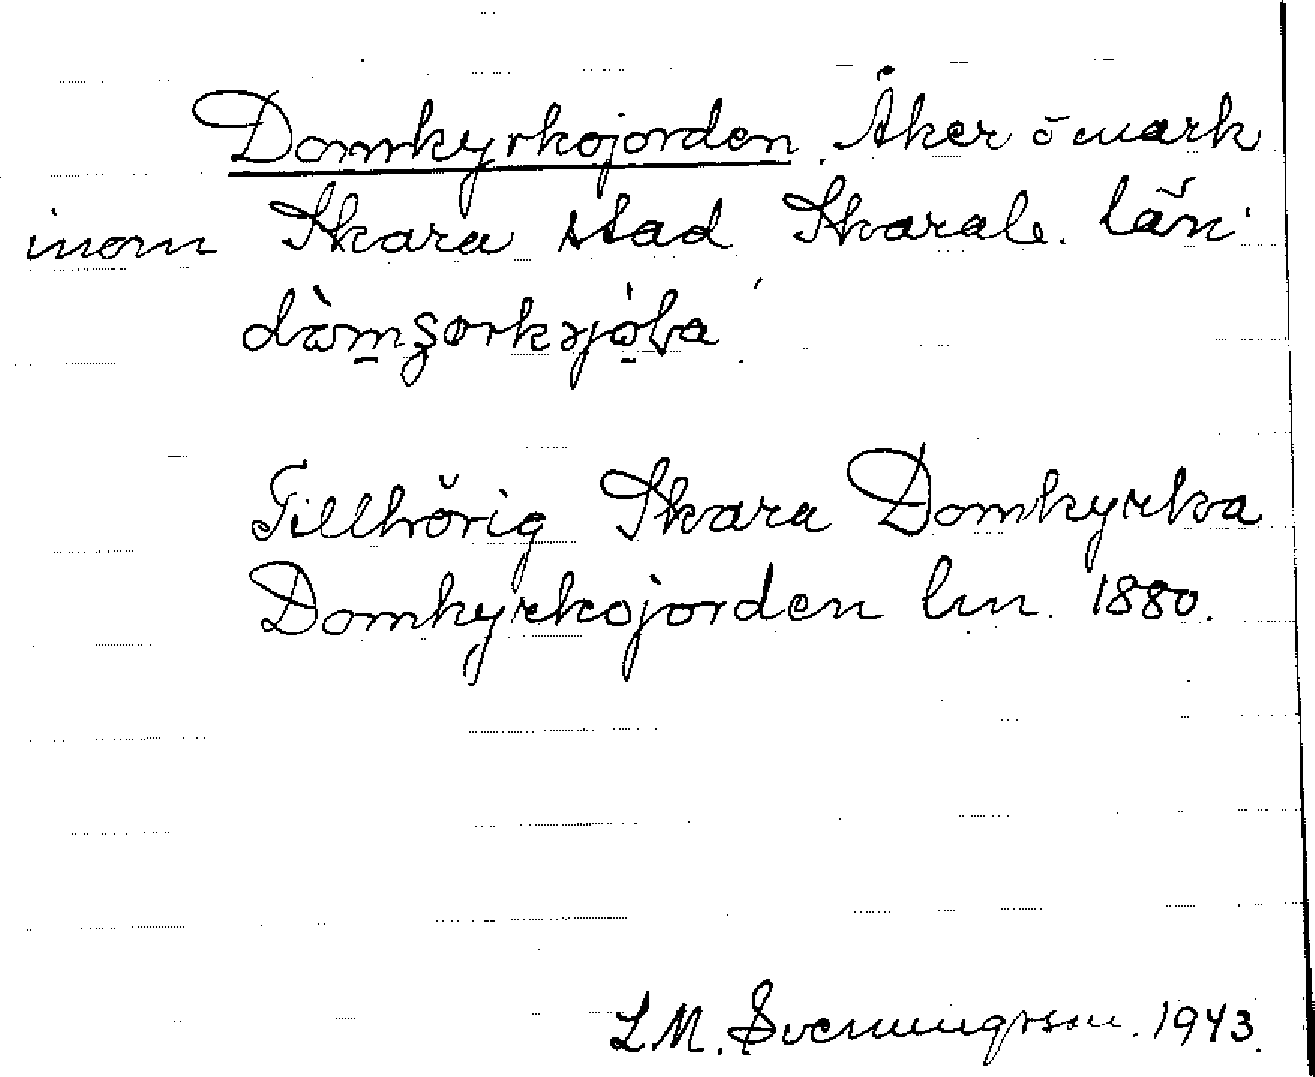 Domkyrkojorden. Åker o mark
inom Skara stad Skarab. län.
Tillhörig Skara Domkyrka
Domkyrkojorden lm. 1880.
L.M. Svenningsson. 1943.